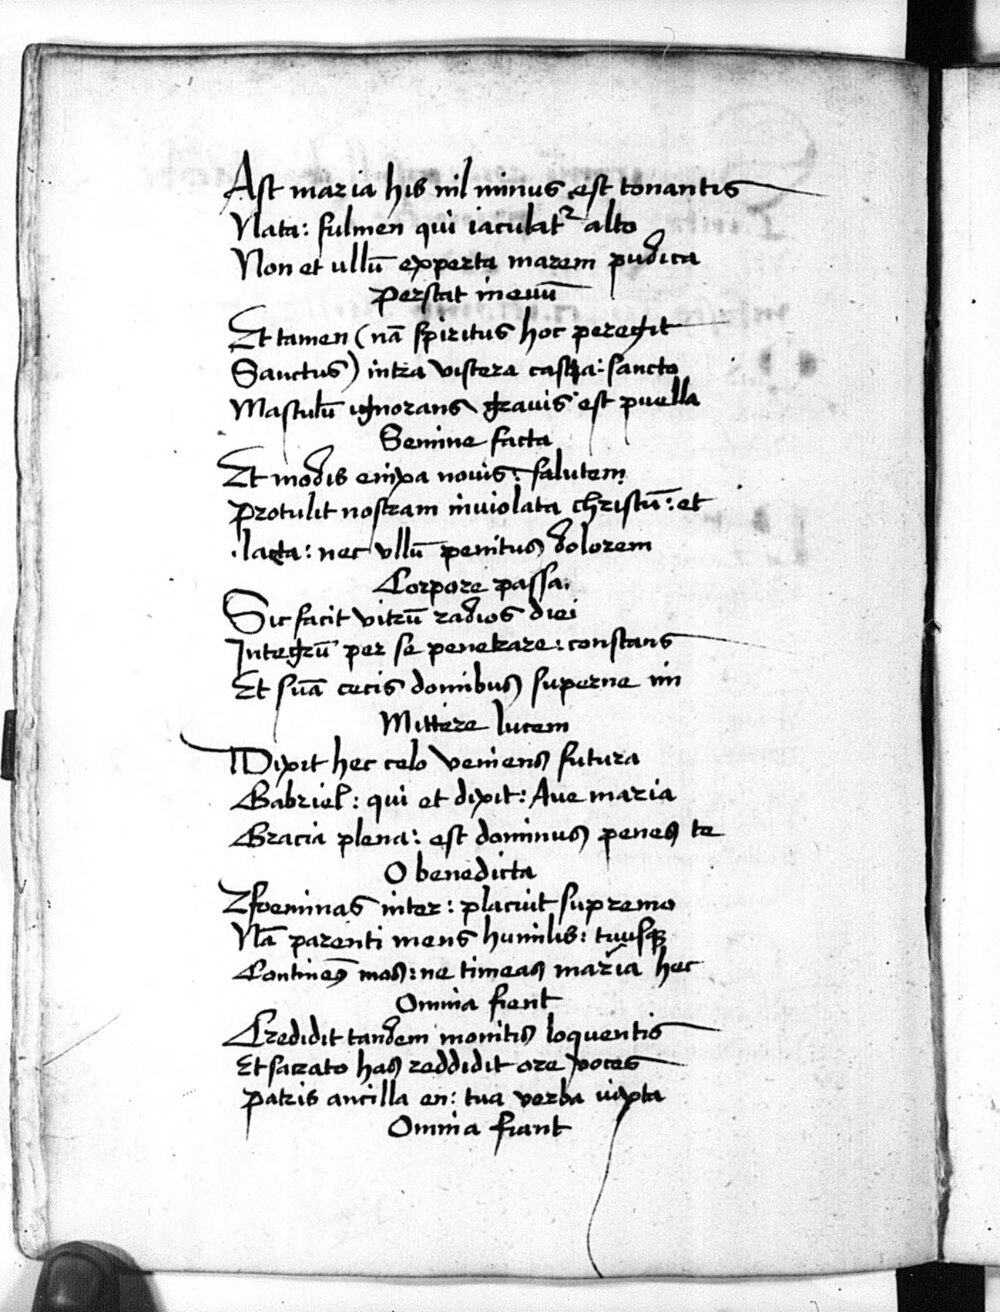 Ast maria his nil minus est tonantis
Nata: fulmen qui iaculatꝛ alto
Non et ullū experta marem pudica
Perstat in euū
Et tamen (nā spiritus hoc peregit
Sanctus) intra viscera casta: sancto
Masculū ignorans gravis est puella
Semine facta
Et modis enixa novis: salutem
Protulit nostram inviolata christū: et
lacta: nec vllū penitus dolorem
Corpore passa.
Sic facit vitrū radios diei
Integrū per se penetrare: constans
Et suā cecis domibus superne
Mittere lucem
Dixit hec celo veniens futura
Gabriel: qui et dixit: Aue maria
Gracia plena: est dominus penes te
O benedicta
foeminas inter: placuit supremo
Nā parenti mens humilis: tuusqꝫ
Continens mos: ne timeas maria hec
Omnia fient
Credidit tandem monitis loquentis
Et sacrato has reddidit ore voces
Patris ancilla en: tua verba iuxta
Omnia fiant